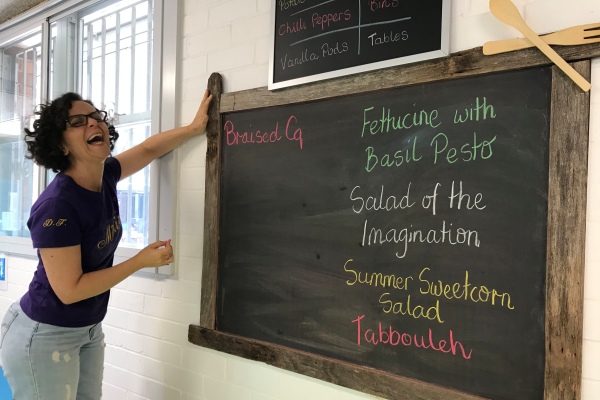 Chilli Peppers
Bins
Vanilla Pods
Tables
Braised Cq
Fettucine with
Basil Pesto
Salad of the
Imagination
Summer Sweetcorn
Salad
Tabbouleh
D.F.